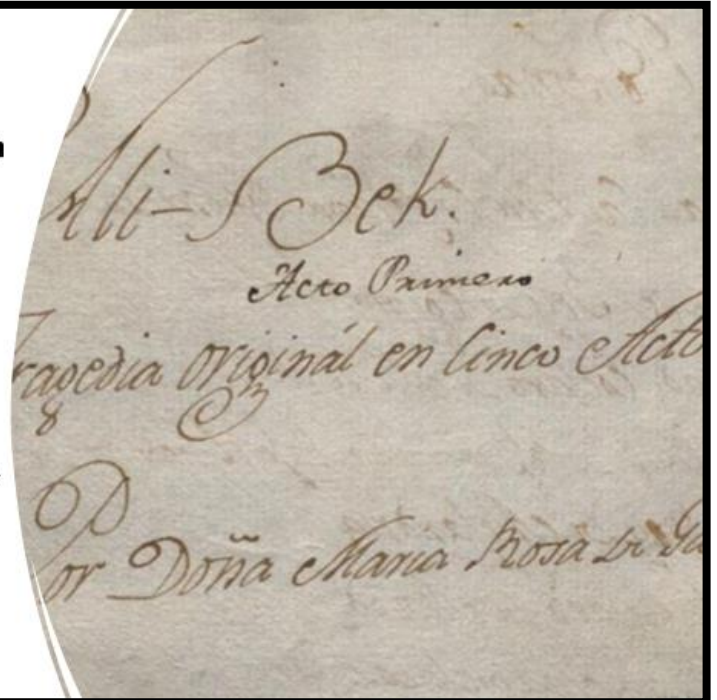 Ali-Bek.
Acto Primero
ragedia originál en Cinco Acto
Por Doña Maria Rosa de Ga